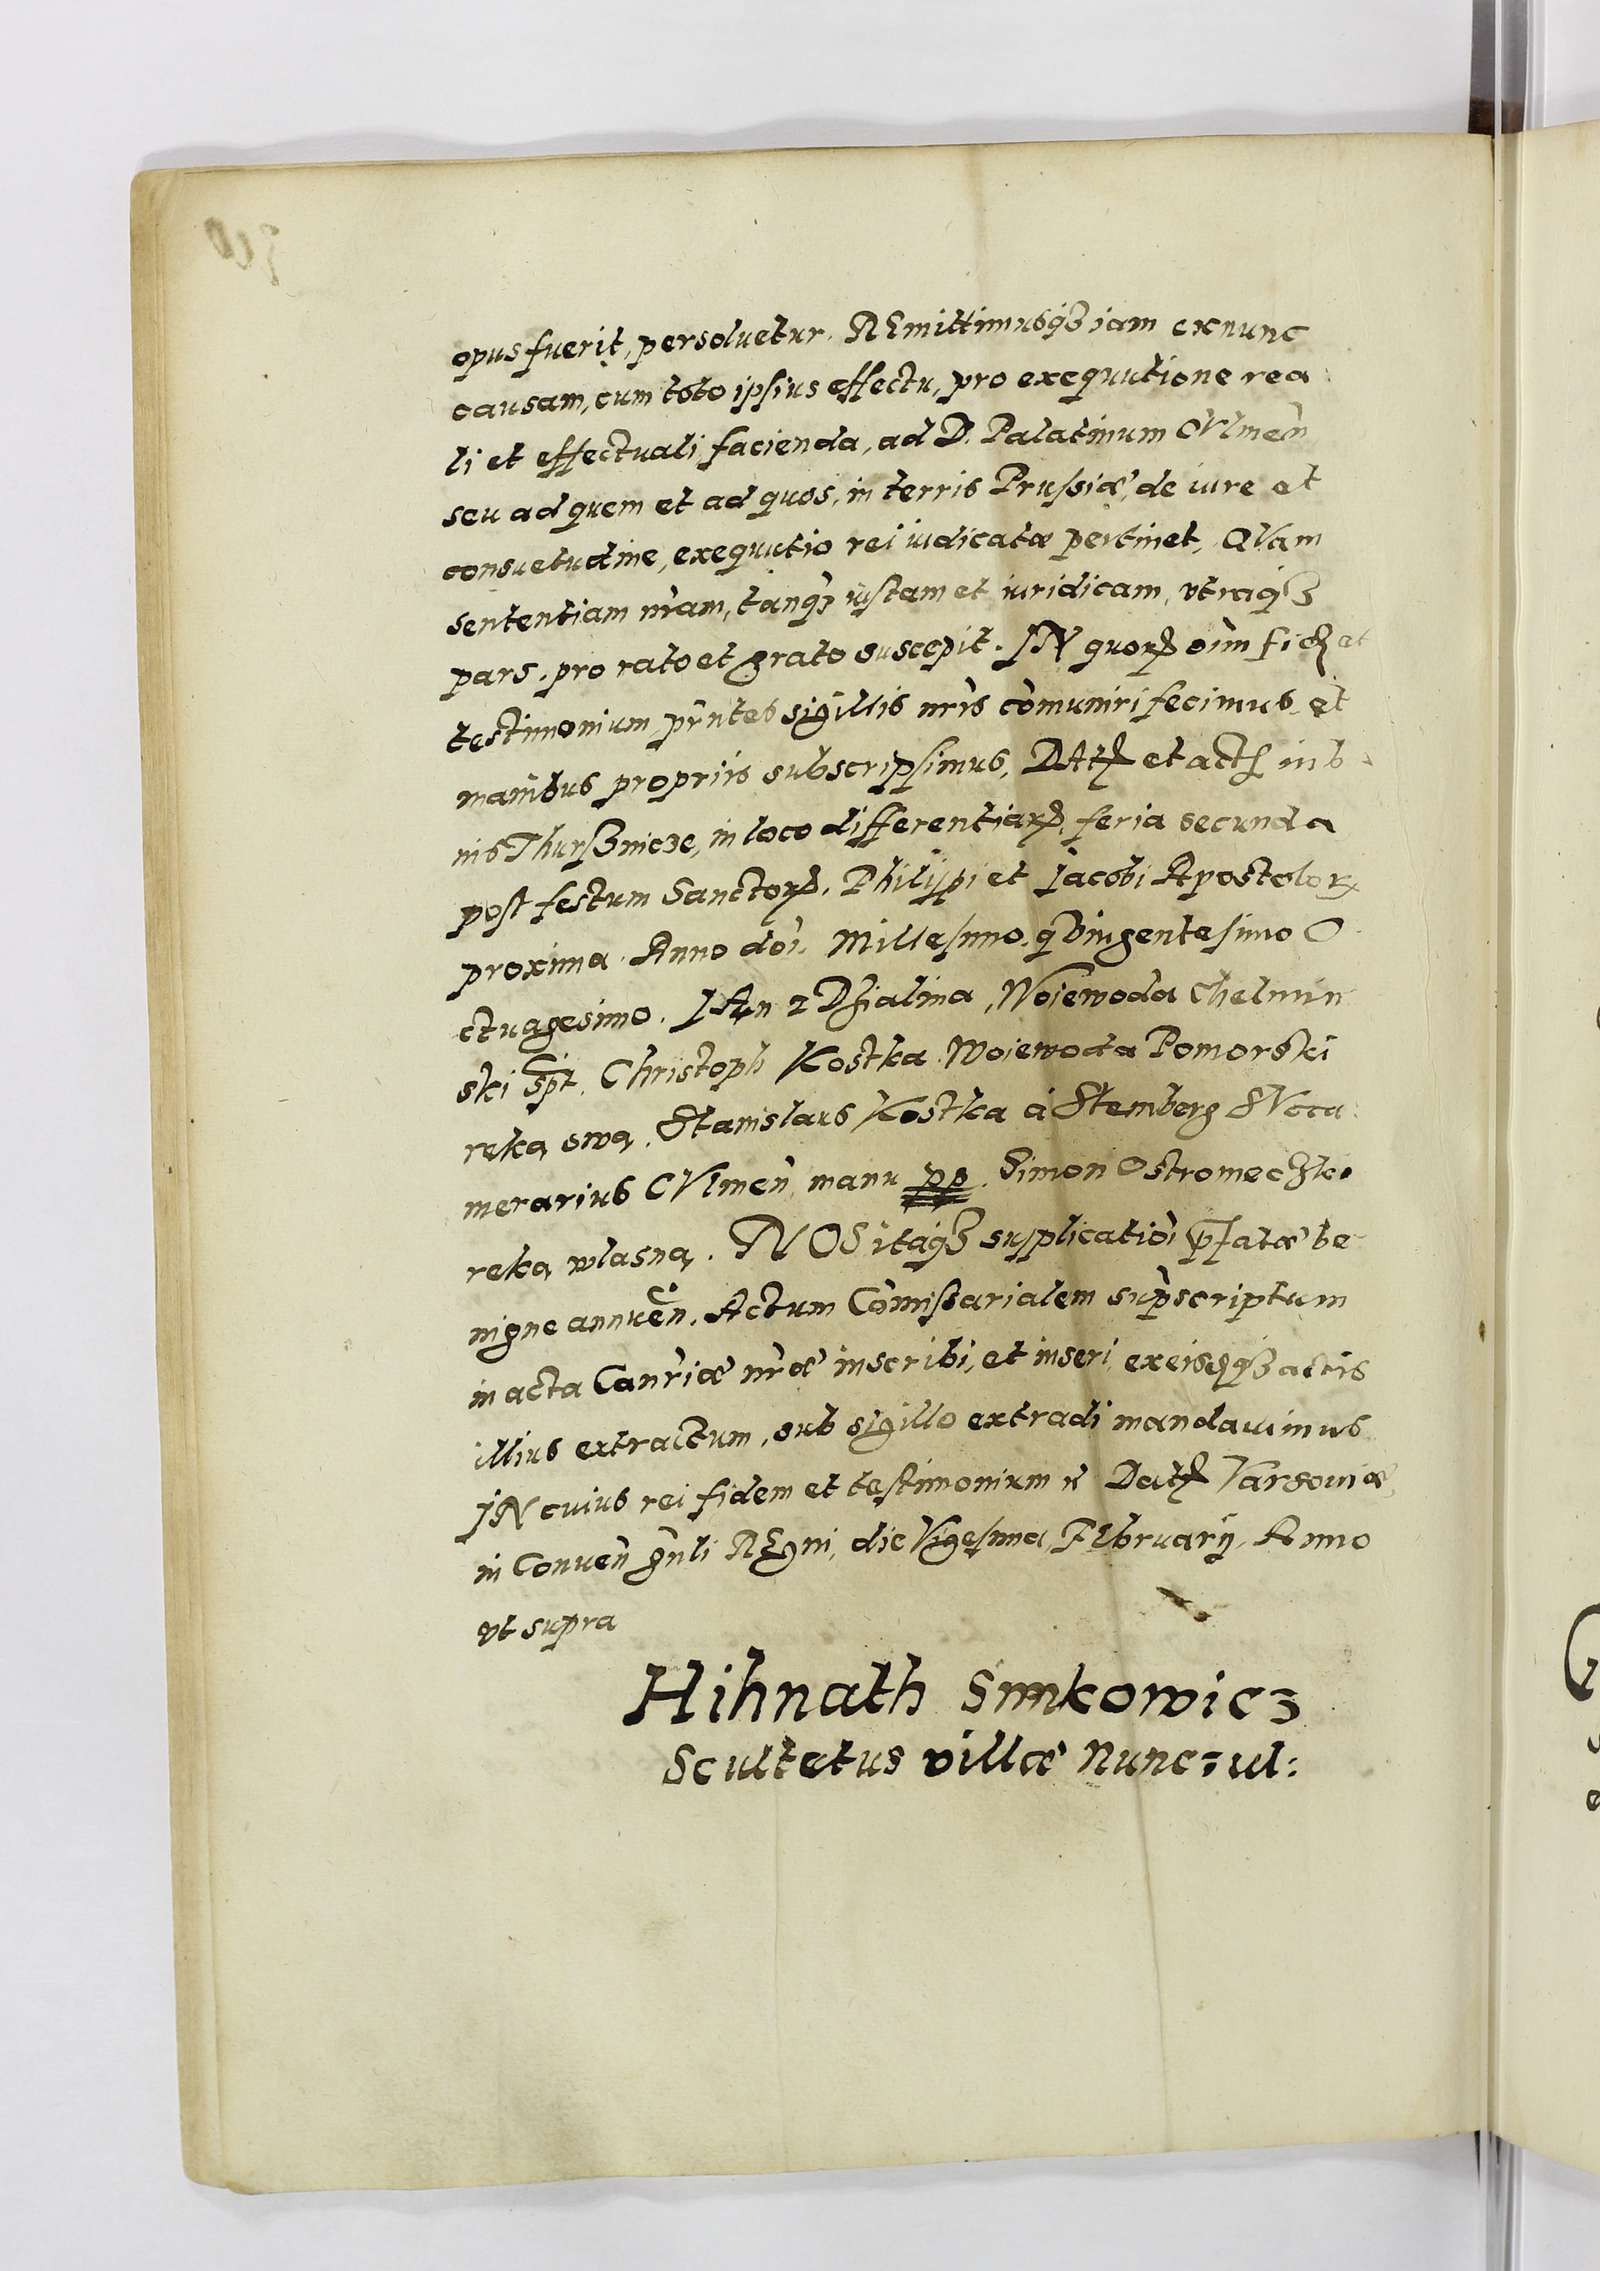 opus fuerit, persoluetur. REmittimusq3 iam exnunc
causam, cum toto ipsius effectu, pro exequutione rea
li et effectuali facienda, ad D. Palatinum CUlmeñ
seu ad quem et ad quos, in terris Prussiæ, de iure et
consuetudine, exequutio rei iudicatæ pertinet, QUam
sententiam nr̃am, tanq̃ȝ iustam et iuridicam, vtraq3
pars, pro rato et grato suscepit. IN quorꝝ oĩm fidē et
testimonium, pñtes sigillis nr̃is cõmuniri fecimus, et
manibus propriis subscripsimus, DAtꝝ et actꝝ in b
nis Thurs3nicze, in loco differentiarꝝ, feria secunda
post festum Sanctorꝝ, Philippi et Jacobi Apostolorꝝ
proxima. Anno dõi. Millesimo, qVingentesimo O
ctuagesimo. JAn z Dzialina, Woiewoda Chelmin
ski spt. Christoph Kostka Woiewoda Pomorski
reką swą. Stanislaus Kostka à Stemberg SUcca
merarius CUlmeñ, manu pp. Simon Ostromeczki
reką wlasną. NOS itaq3 supplicatiõi p̃fatæ be
nigne annueñ. Actum Com̃issarialem sup̃scriptum
in acta Canr̃iæ nr̃æ inscribi, et inseri, exeisdq3 actis
illius extractum, sub sigillo extradi mandauimus
IN cuius rei fidem et testimonium Datꝝ Varsouiæ,
in Conueñ gñli REgni, die Vigesima, FEbruarij, Anno
vt supra
Hihnath Simkowicz
Scultetus villæ Nunczul: